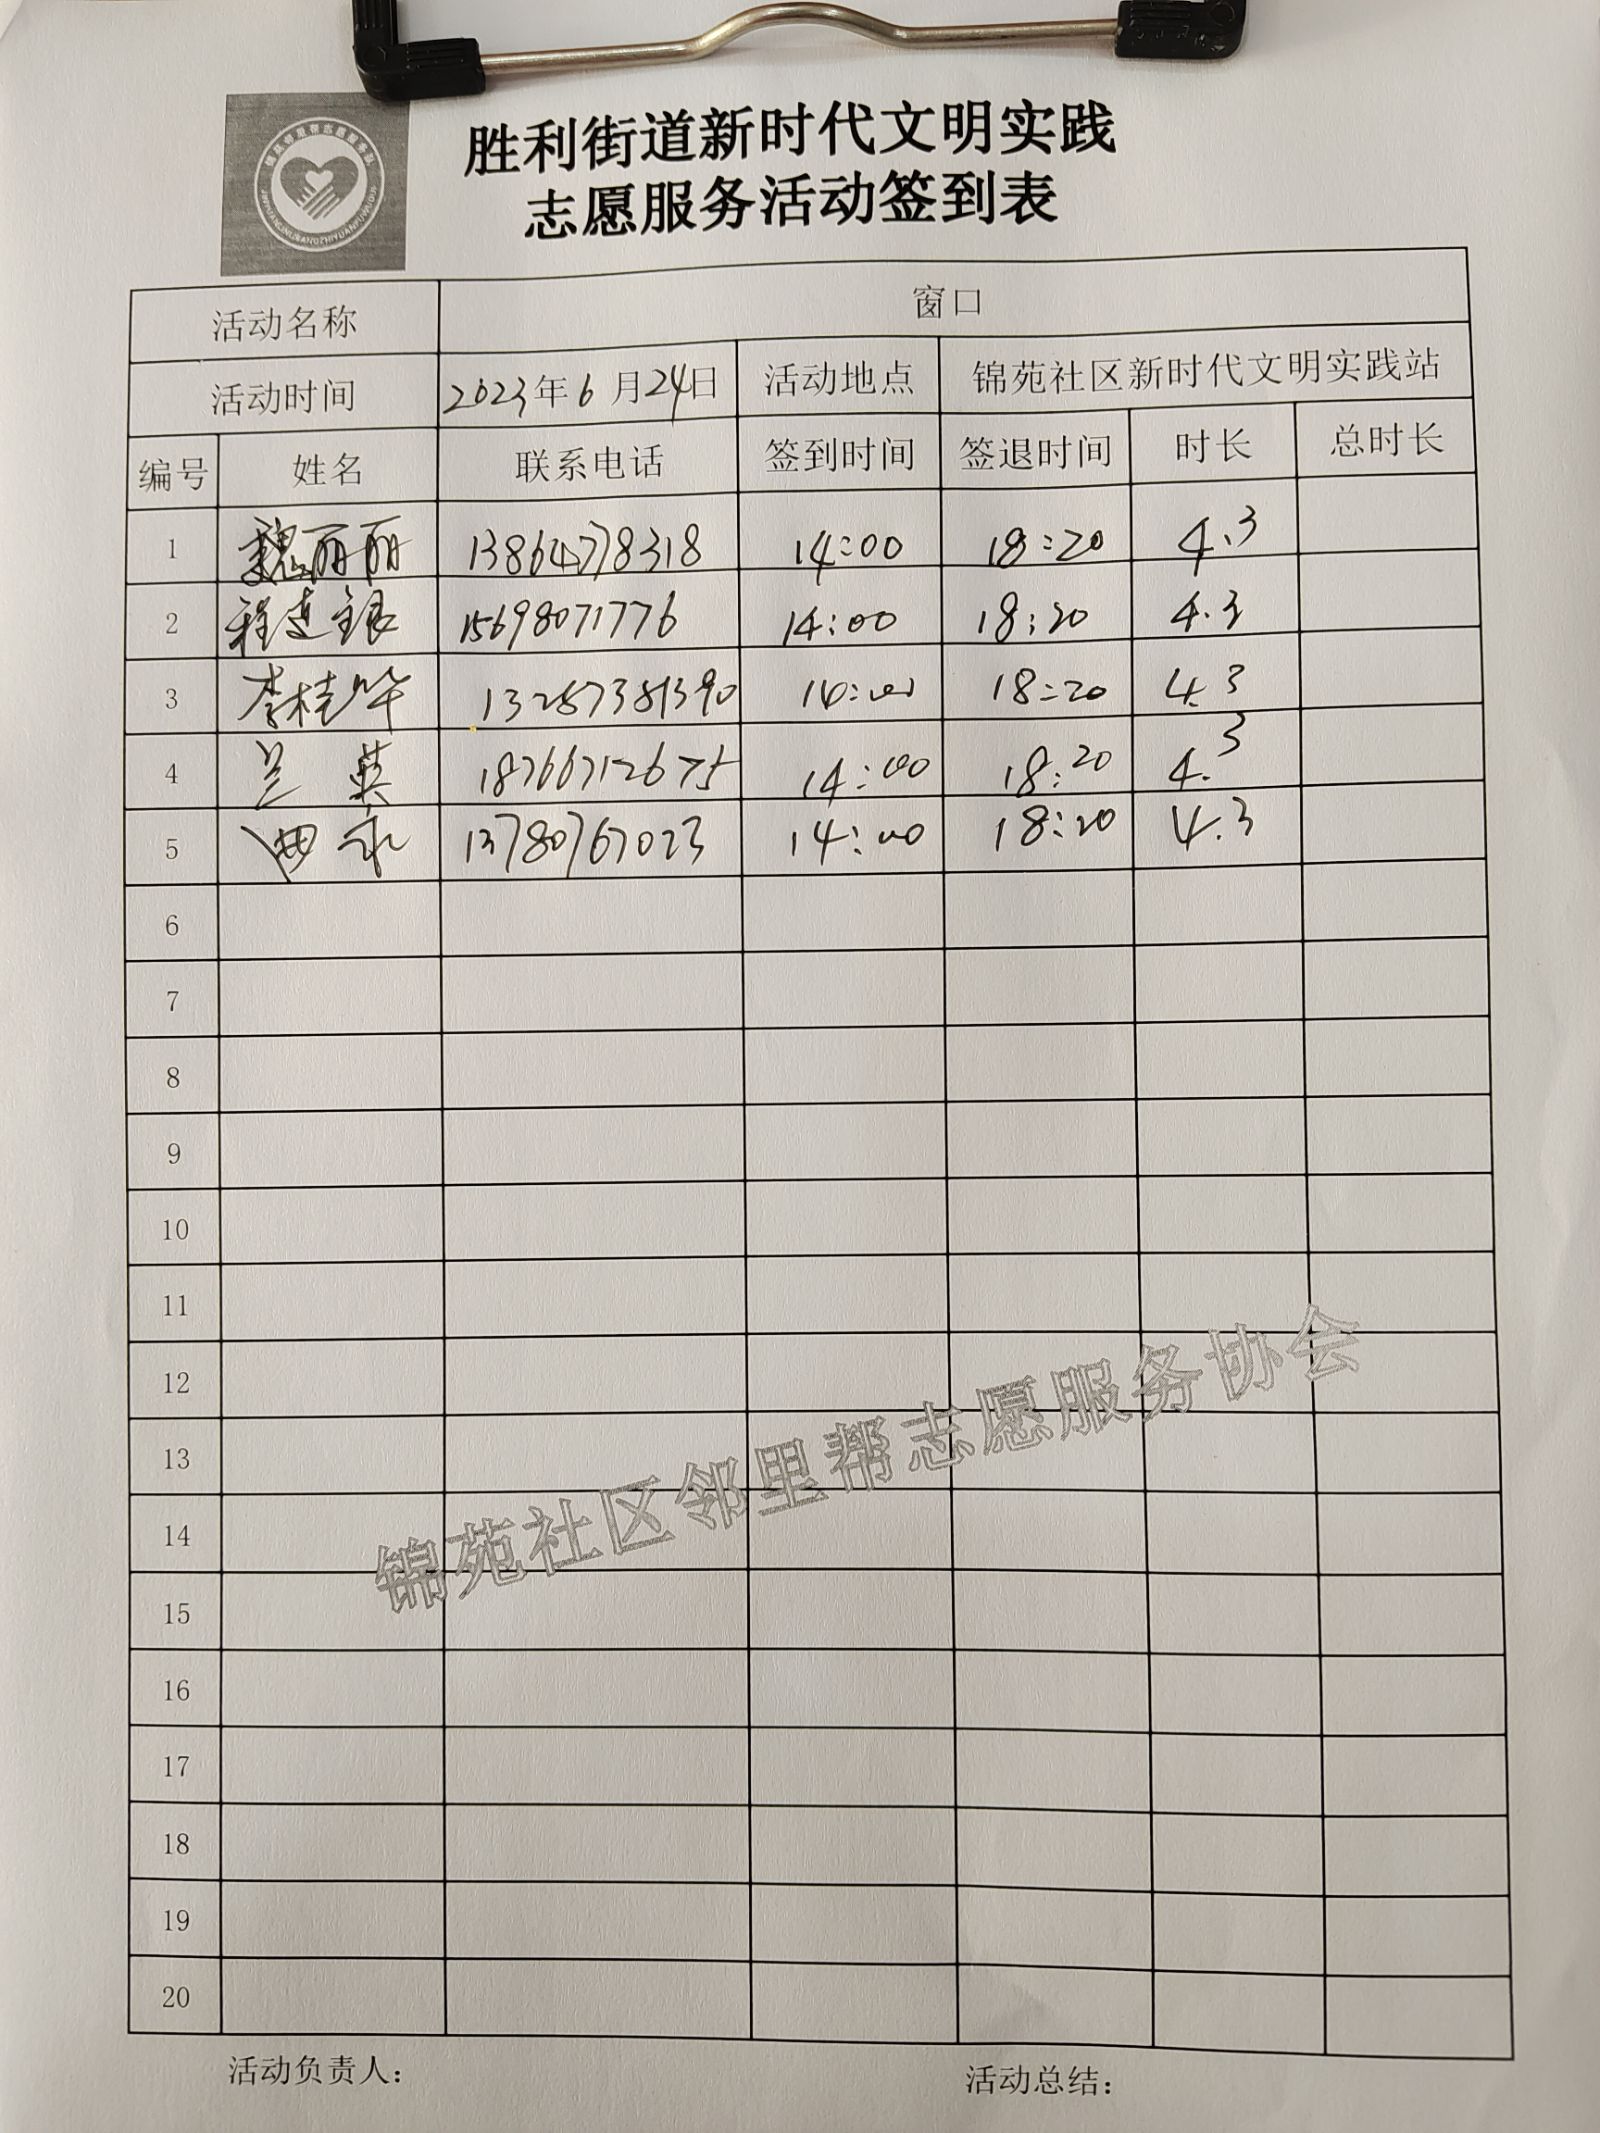 胜利街道新时代文明实践
志愿服务活动签到表
活动名称 窗口
活动时间 2023年6月24日 活动地点 锦苑社区新时代文明实践站
编号 姓名 联系电话 签到时间 签退时间 时长 总时长
1 魏丽丽 13864778318 14:00 18:20 4.3
2 程连银 15698071776 14:00 18:20 4.3
3 李桂华 13287381390 14:00 18:20 4.3
4 兰英 18766712675 14:00 18:20 4.3
5 13780767023 14:00 18:20 4.3
6
7
8
9
10
11
12
13
14
15
16
17
18
19
20
锦苑社区邻里帮志愿服务协会
活动负责人： 活动总结：